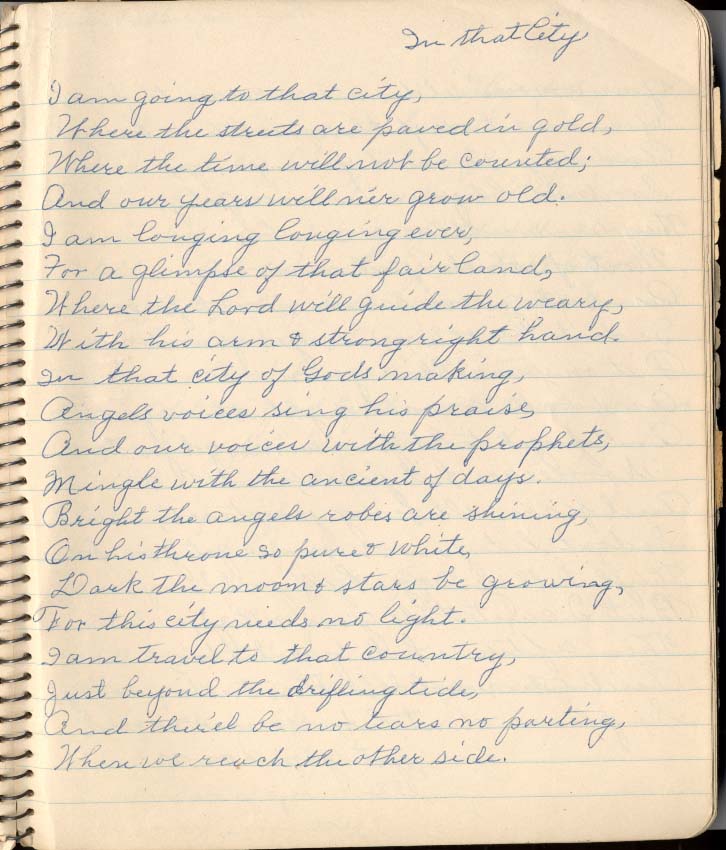 In that City
I am going to that city,
Where the streets are paved in gold,
Where the time will not be counted;
And our years will ne'r grow old.
I am longing longing ever,
For a glimpse of that fair land,
Where the Lord will guide the weary,
With his arm & strong right hand.
In that city of Gods making,
Angels voices sing his praise,
And our voices with the prophets,
Mingle with the ancient of days.
Bright the angels robes are shining,
On his throne so pure & white,
Dark the moon & stars be growing,
For this city needs no light.
I am travel to that country,
Just beyond the drifting tide,
And there'el be no tears no parting,
When we reach the other side.